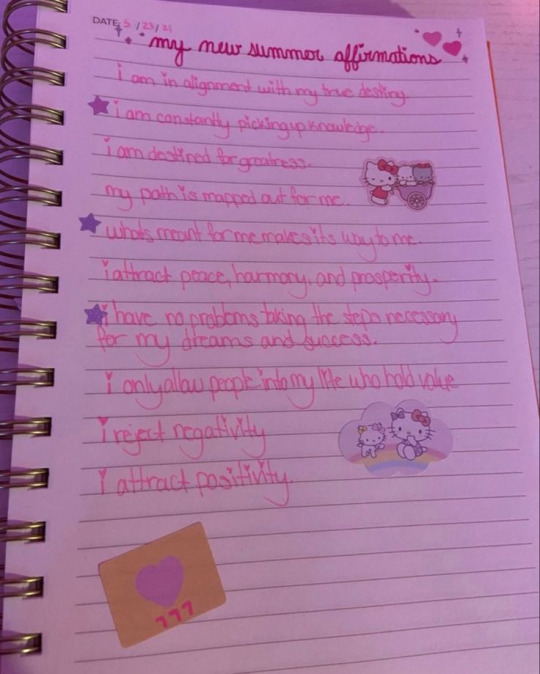 DATE: 5/23/21
my new summer affirmations
i am in alignment with my true destiny.
i am constantly picking up knowledge.
i am destined for greatness.
my path is mapped out for me.
whats meant for me makes its way to me.
i attract peace, harmony, and prosperity.
i have no problems taking the steps necessary
for my dreams and success.
i only allow people into my life who hold value
i reject negativity
i attract positivity.
777